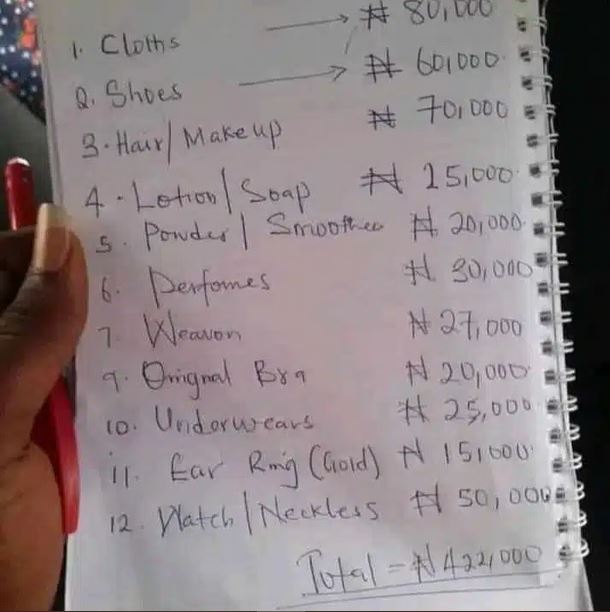 1. Cloths → ₦ 80,000
2. Shoes → ₦ 60,000
3. Hair/Makeup ₦ 70,000
4. Lotion/Soap ₦ 25,000
5. Powder/Smoother ₦ 20,000
6. Perfomes ₦ 30,000
7. Weavon ₦ 27,000
9. Orignal Bra ₦ 20,000
10. Underwears ₦ 25,000
11. Ear Ring (Gold) ₦ 15,000
12. Watch/Neckless ₦ 50,000
Total = ₦ 422,000